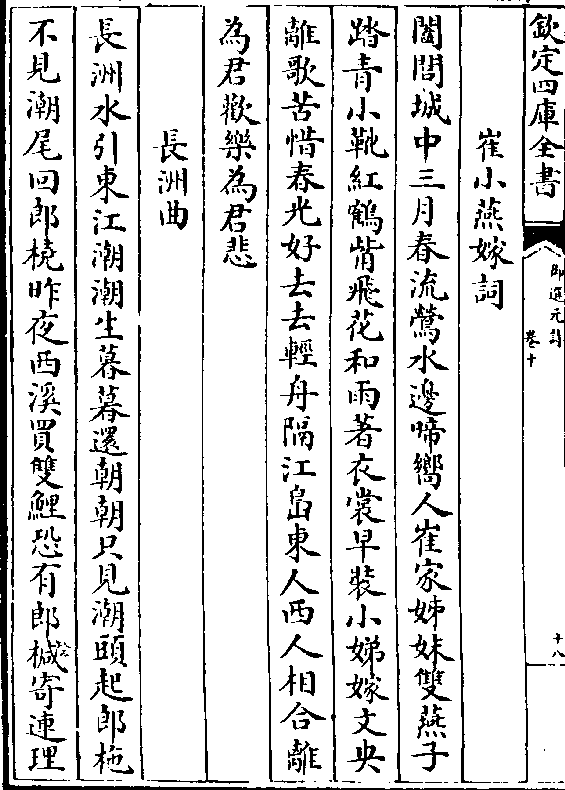 欽定四庫全書
御選元詩
卷十
十八
崔小燕嫁詞
闔閭城中三月春流鶯水邊啼嚮人崔家姊妹雙燕子
踏青小靴紅鶴觜飛花和雨著衣裳早裝小娣嫁文央
離歌苦惜春光好去去輕舟隔江島東人西人相合離
為君歡樂為君悲
長洲曲
長洲水引東江潮潮生暮暮還朝朝只見潮頭起郎柂
不見潮尾回郎橈昨夜西溪買雙鯉恐有郎椷寄連理